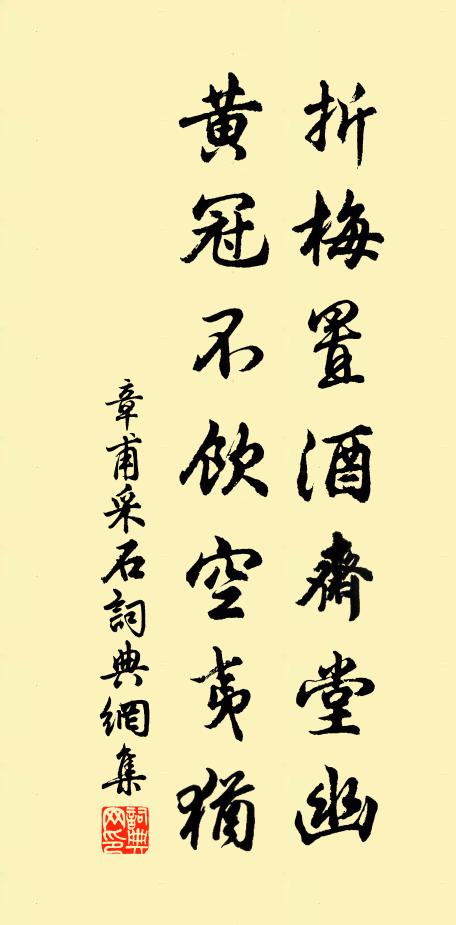 折梅置酒齋堂幽
黃冠不飲空夷猶
章甫采石詞典網集
詞典網印